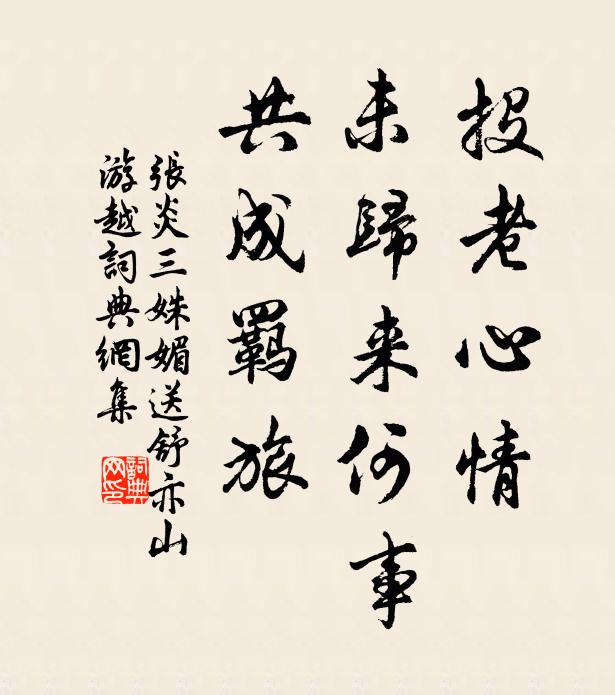 投老心情
未歸来何事
共成羈旅
張炎三姝媚送舒亦山
游越詞典網集
詞典网印